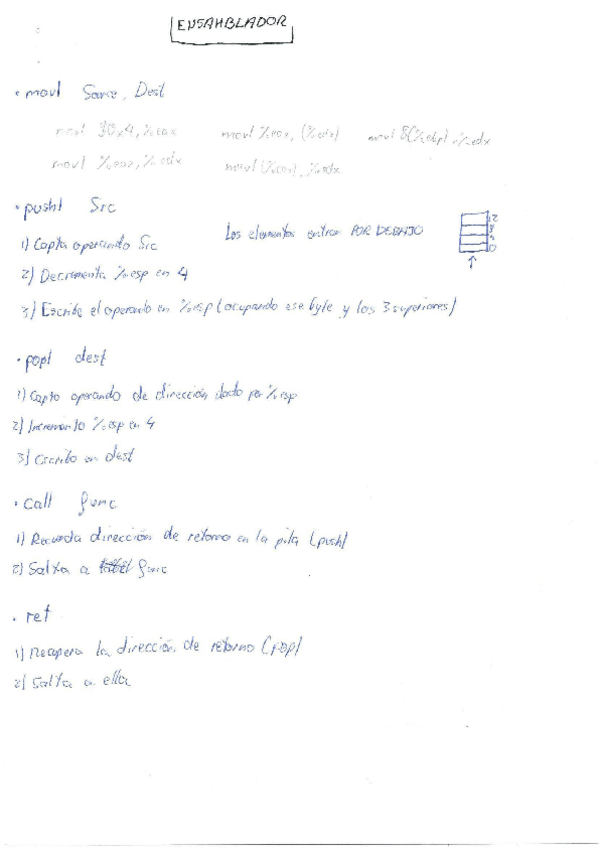 ENSAMBLADOR
• movl Source, Dest
movl 30x4, %eax movl %eax, (%edx) movl 8(%ebp), %edx
movl %eax, %edx movl (%eax), %edx
• pushl Src
1) Capta operando Src
Los elementos entran POR DEBAJO
2) Decrementa %esp en 4
3) Escribe el operando en %esp (ocupando ese byte y los 3 superiores)
• popl dest
1) Capto operando de dirección dada por %esp
2) Incremento %esp en 4
3) Escribo en dest
• call func
1) Recuerda dirección de retorno en la pila (push)
2) Salta a func
• ret
1) Recupera la dirección de retorno (pop)
2) Salta a ella